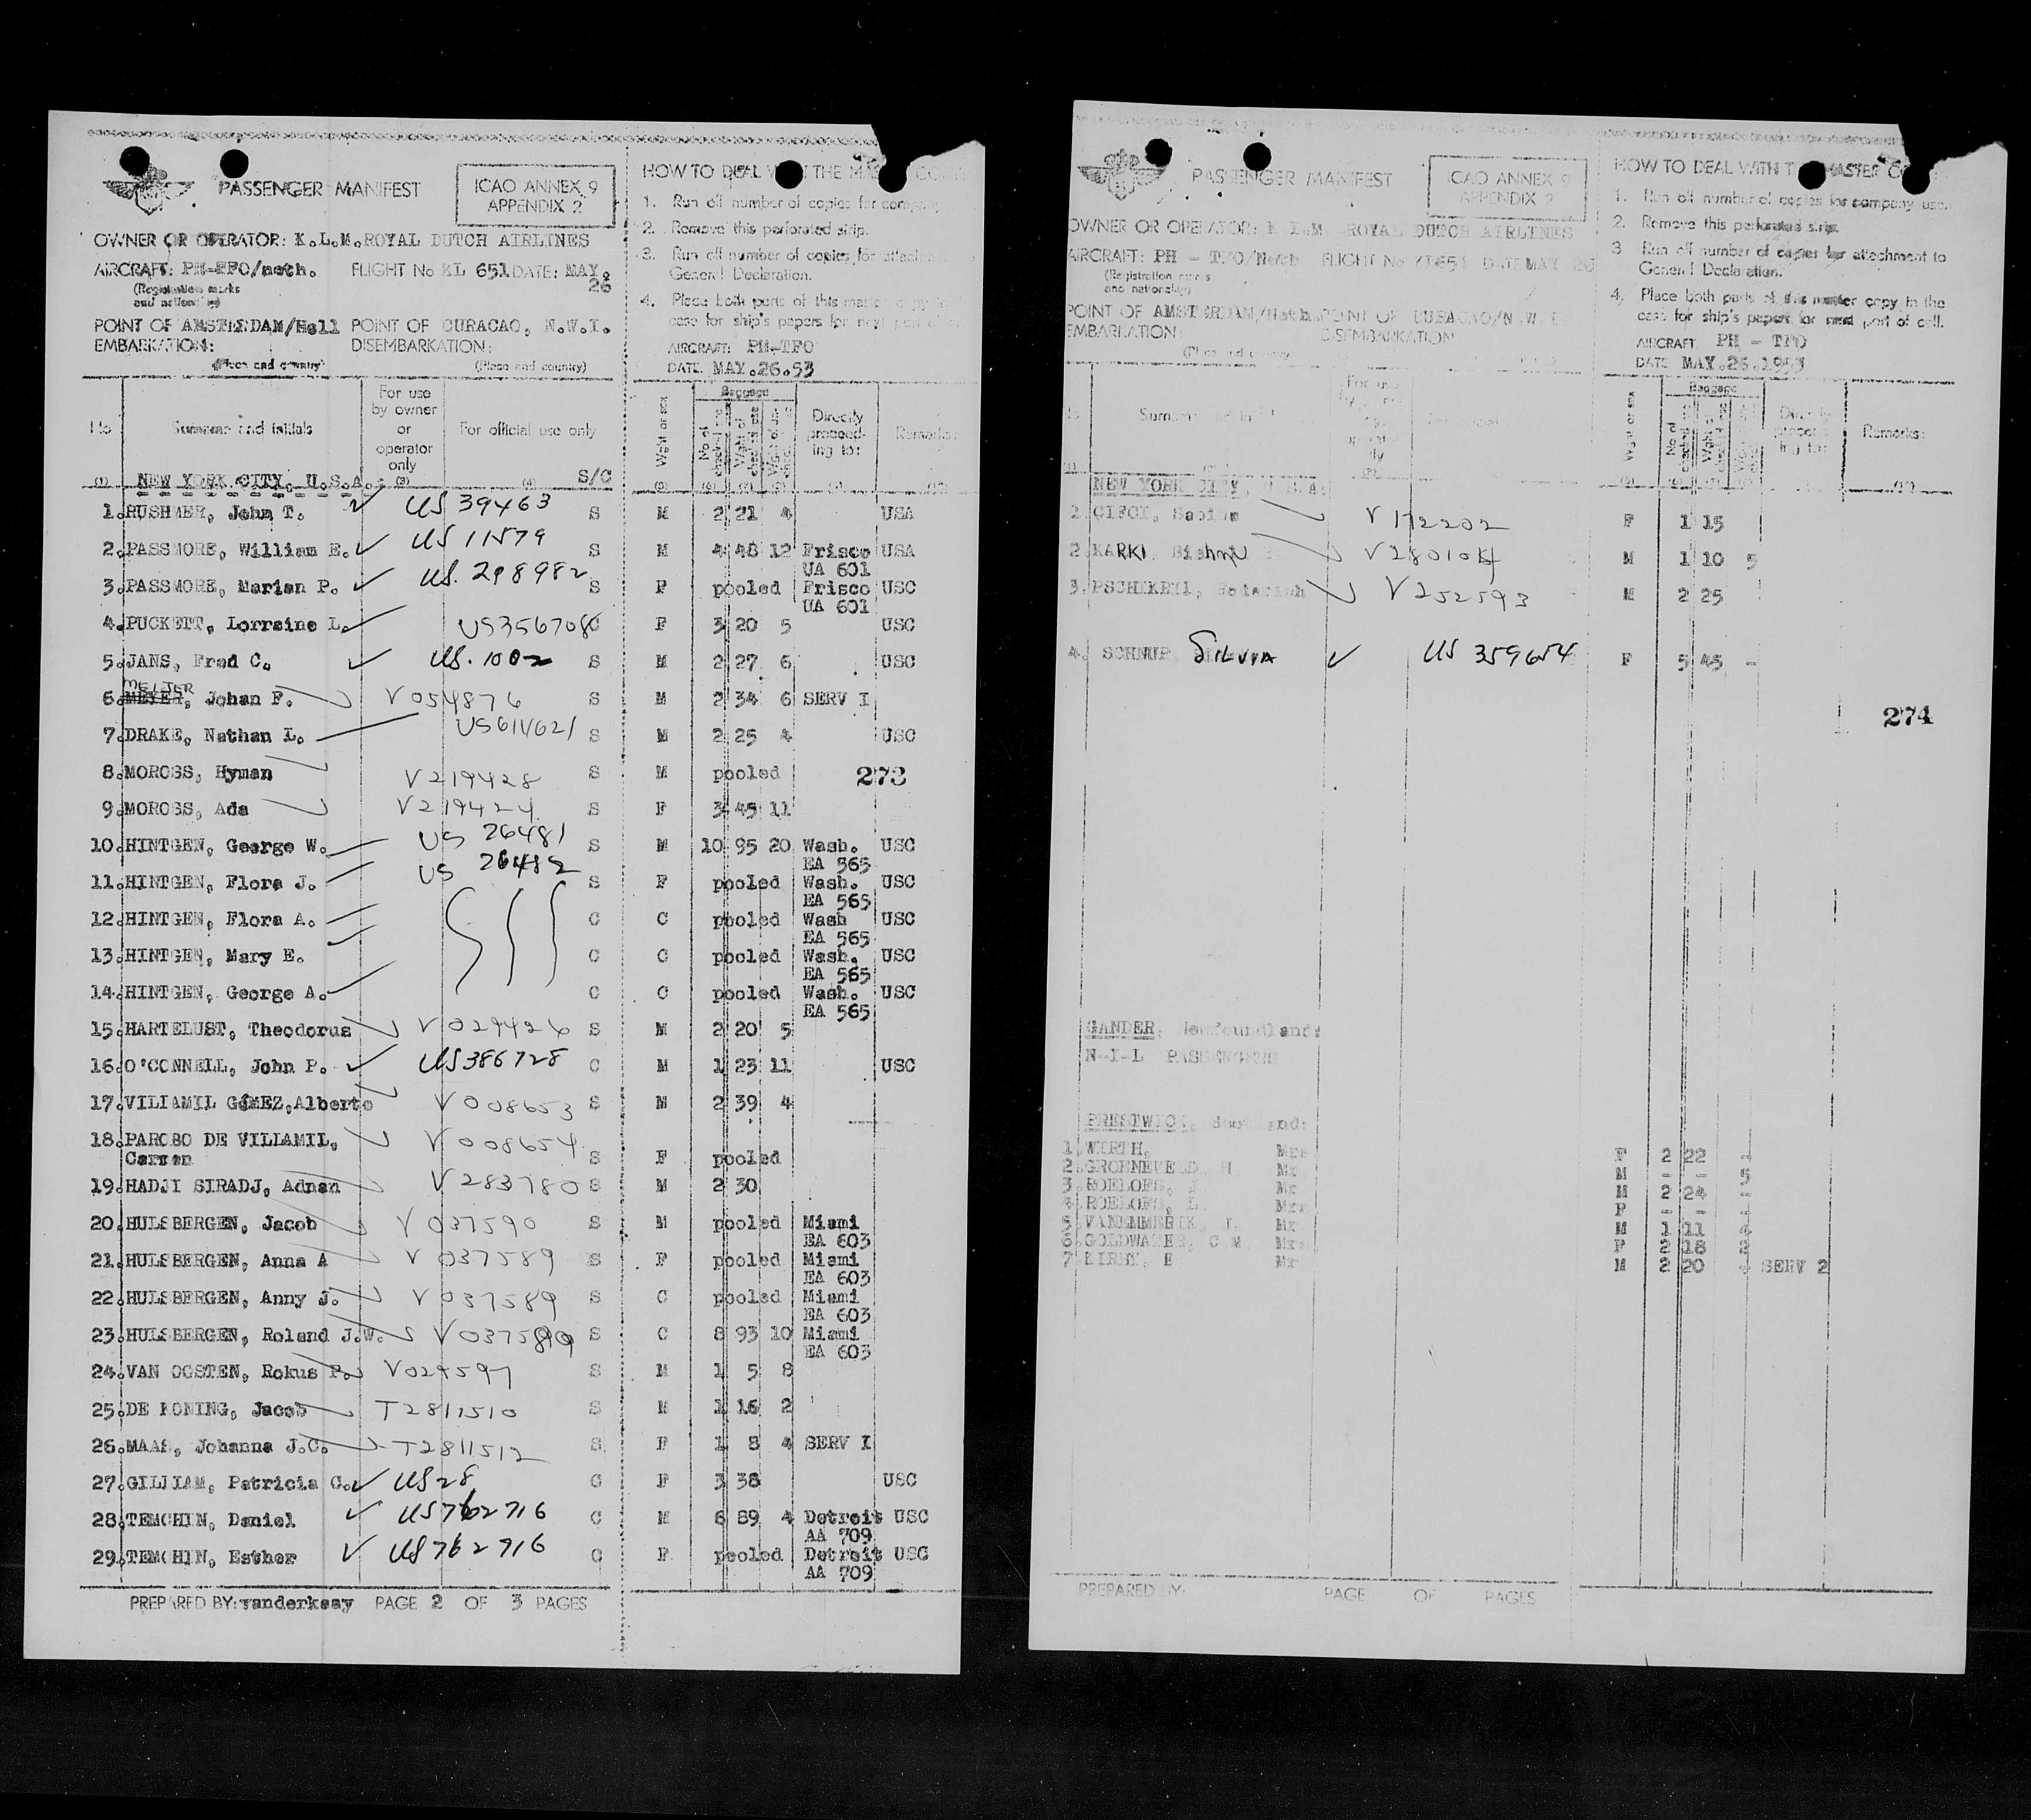 PASSENGER MANIFEST
ICAO ANNEX 9
APPENDIX 2
OWNER OR OPERATOR: K.L.M. ROYAL DUTCH AIRLINES
AIRCRAFT: PH-TFO/neth. FLIGHT No KL 651 DATE: MAY. 26
(Registration marks
and nationality)
POINT OF AMSTERDAM/Holl POINT OF CURACAO, N.W.I.
EMBARKATION: DISEMBARKATION:
(Place and country) (Place and country)
HOW TO DEAL WITH THE MASTER COPY
1. Run off number of copies for company
2. Remove this perforated strip.
3. Run off number of copies for
General Declaration.
4. Place both parts of this master copy in
case for ship's papers for next port of
AIRCRAFT: PH-TFO
DATE MAY.26.53
No Surname and initials For use by owner or operator only For official use only Wght or sex Baggage Directly proceeding to: Remarks:
(1) NEW YORK CITY, U.S.A. (3) (4) S/C
1. RUSHMER, John T. US 39463 S M 2 21 4 USA
2. PASSMORE, William E. US 11579 S M 4 48 12 Frisco USA
UA 601
3. PASSMORE, Marian P. US. 298982 S F pooled Frisco USC
UA 601
4. PUCKETT, Lorraine L. US356708 C F 3 20 5 USC
5. JANS, Fred C. US. 1002 S M 2 27 6 USC
MEIJER
6. MEYER, Johan F. V054876 S M 2 34 6 SERV I
7. DRAKE, Nathan L. US611621 S M 2 25 4 USC
8. MOROSS, Hyman V219428 S M pooled
273
9. MOROSS, Ada V219424 S F 3 45 11
10. HINTGEN, George W. US 26481 S M 10 95 20 Wash. USC
EA 565
11. HINTGEN, Flora J. US 26482 S F pooled Wash. USC
EA 565
12. HINTGEN, Flora A. C C pooled Wash USC
EA 565
13. HINTGEN, Mary E. C C pooled Wash. USC
EA 565
14. HINTGEN, George A. C C pooled Wash. USC
EA 565
15. HARTELUST, Theodorus V029426 S M 2 20 5
16. O'CONNELL, John P. US386728 C M 1 23 11 USC
17. VILIAMIL GOMEZ, Alberto V008653 S M 2 39 4
18. PAROBO DE VILLAMIL, V008654
Carmen S F pooled
19. HADJI SIRADJ, Adnan V283780 S M 2 30
20. HULSBERGEN, Jacob V037590 S M pooled Miami
EA 603
21. HULSBERGEN, Anna A V037589 S F pooled Miami
EA 603
22. HULSBERGEN, Anny J. V037589 S C pooled Miami
EA 603
23. HULSBERGEN, Roland J.W. S C 8 93 10 Miami
EA 603
24. VAN OOSTEN, Rokus P. V024597 S M 1 5 8
25. DE KONING, Jacob T2811510 S M 1 16 2
26. MAAS, Johanna J.C. T2811512 S F 1 8 4 SERV I
27. GILLIAM, Patricia C. US28 C F 3 38 USC
28. TEMCHIN, Daniel US762716 C M 6 89 4 Detroit USC
AA 709
29. TEMCHIN, Esther US762716 C F pooled Detroit USC
AA 709
PREPARED BY: vanderkaay PAGE 2 OF 3 PAGES
PASSENGER MANIFEST
ICAO ANNEX 9
APPENDIX 2
OWNER OR OPERATOR: K.L.M. ROYAL DUTCH AIRLINES
AIRCRAFT: PH - TFO/Neth FLIGHT No KL651 DATE MAY 26
(Registration marks
and nationality)
POINT OF AMSTERDAM/Neth. POINT OF CURACAO/N.W.I.
EMBARKATION: DISEMBARKATION
(Place and country)
HOW TO DEAL WITH THE MASTER
1. Run off number of copies for company use.
2. Remove this perforated strip.
3 Run off number of copies for attachment to
General Declaration.
4, Place both parts of this master copy in the
case for ship's papers for next port of call.
AIRCRAFT PH - TFO
DATE MAY.26.1953
Wght or sex Baggage Directly proceeding to: Remarks:
NEW YORK CITY, U.S.A.
CIFCI, V172202 F 1 15
2. KARKI Bishnu V280104 M 1 10 5
3. V252593 M 2 25
4. SCHNUR, SILVIA US 359654 F 5 45 -
274
GANDER, Newfoundland:
N-I-L PASSENGERS
PRESTWICK, Scotland:
1. WIRTH, Mrs F 2 22
2. GROENEVELD, H. Mr M - - 5
3. ROELOFS, J. Mr M 2 24 -
4. ROELOFS, L. Mrs F - - -
5. Mr M 1 11 4
6. GOLDWATER, C.M. Mrs F 2 18 2
7 KIRBY, E Mr M 2 20 SERV 2
PREPARED BY: PAGE OF PAGES